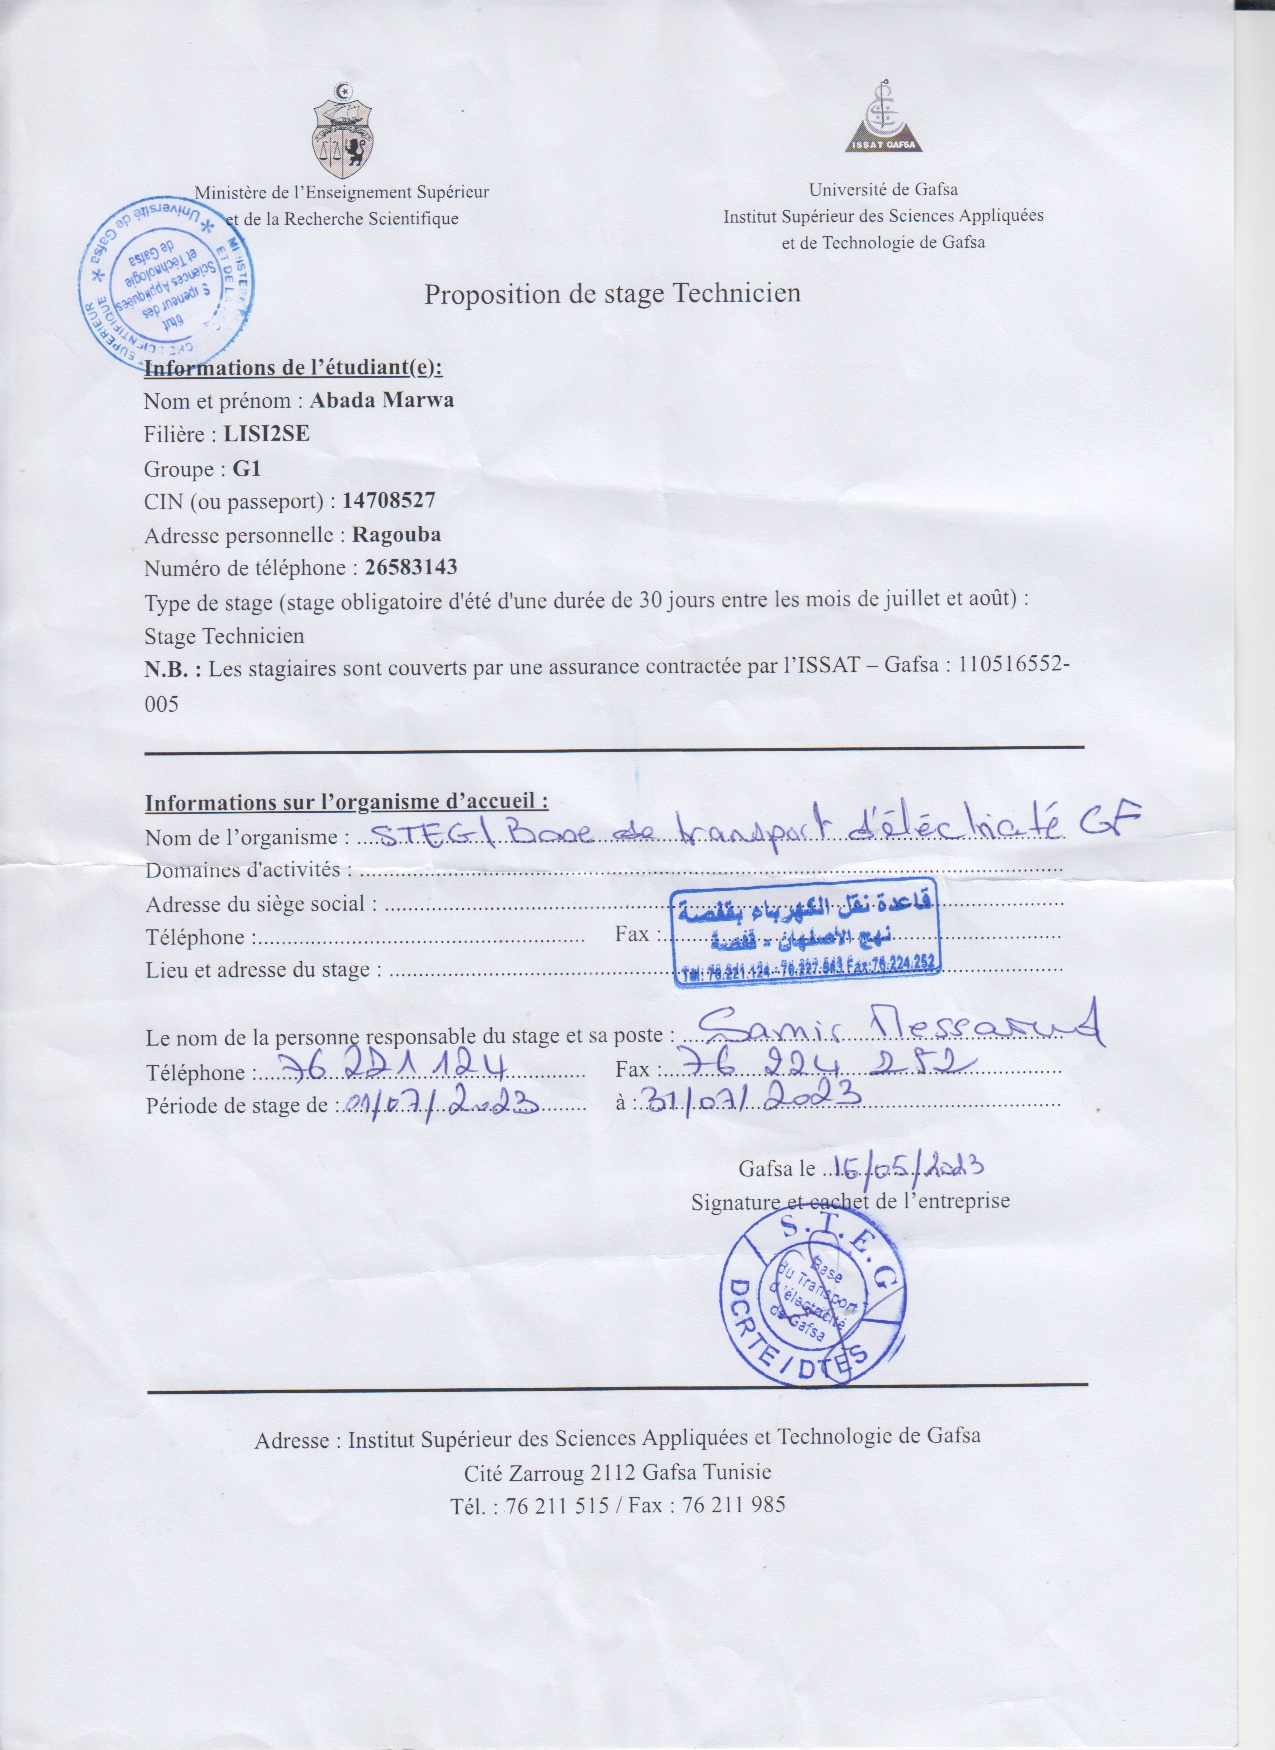 ISSAT GAFSA
Ministère de l'Enseignement Supérieur
et de la Recherche Scientifique
Université de Gafsa
Institut Supérieur des Sciences Appliquées
et de Technologie de Gafsa
Université de Gafsa
Sciences Appliquées
et Technologie
de Gafsa
Proposition de stage Technicien
Informations de l'étudiant(e):
Nom et prénom : Abada Marwa
Filière : LISI2SE
Groupe : G1
CIN (ou passeport) : 14708527
Adresse personnelle : Ragouba
Numéro de téléphone : 26583143
Type de stage (stage obligatoire d'été d'une durée de 30 jours entre les mois de juillet et août) :
Stage Technicien
N.B. : Les stagiaires sont couverts par une assurance contractée par l'ISSAT – Gafsa : 110516552-
005
Informations sur l'organisme d'accueil :
Nom de l'organisme : STEG/ Base de transport d'éléctricité GF
Domaines d'activités :
Adresse du siège social :
Téléphone : Fax :
Lieu et adresse du stage :
قاعدة نقل الكهرباء بقفصة
نهج الأصفهان - قفصة
Tel: 76.221.124 - 76.227.643 Fax:76.224.252
Le nom de la personne responsable du stage et sa poste : Samir Messaoud
Téléphone : 76 221 124 Fax : 76 224 252
Période de stage de : 01/07/2023 à : 31/07/2023
Gafsa le 16/05/2023
Signature et cachet de l'entreprise
S.T.E.G
Base
du Transport
d'électricité
de Gafsa
DCRTE / DTES
Adresse : Institut Supérieur des Sciences Appliquées et Technologie de Gafsa
Cité Zarroug 2112 Gafsa Tunisie
Tél. : 76 211 515 / Fax : 76 211 985